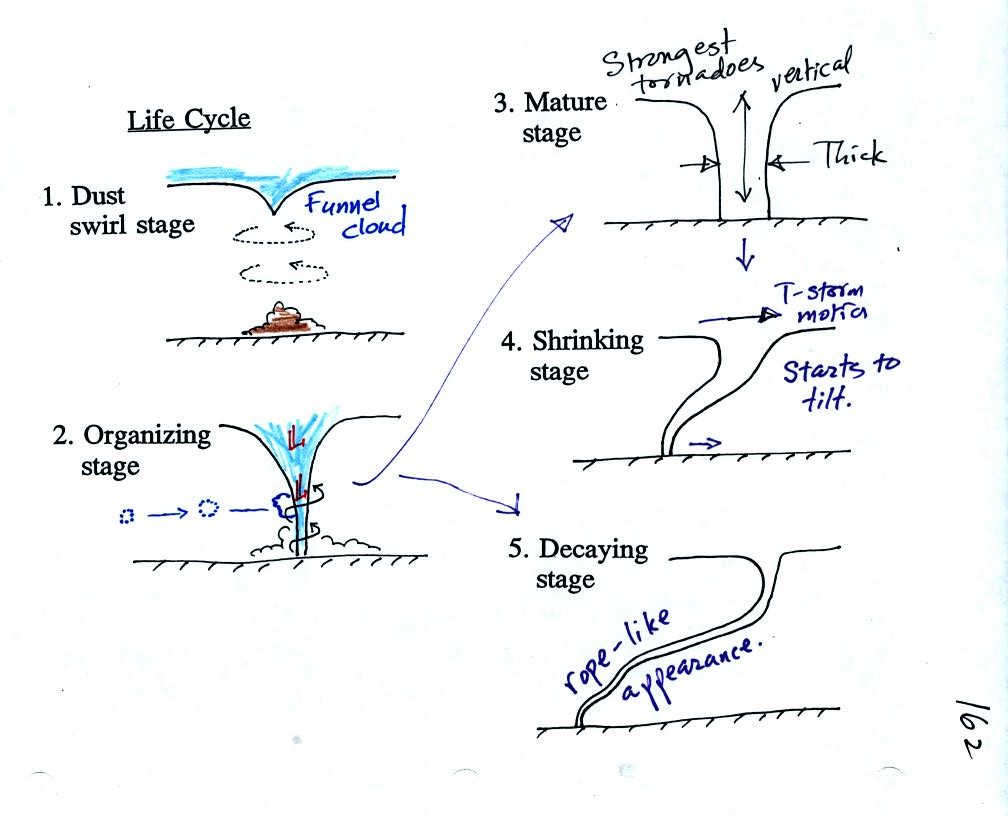 Life Cycle
1. Dust
swirl stage
Funnel
cloud
2. Organizing
stage
L
L
3. Mature
stage
Strongest
tornadoes
vertical
Thick
4. Shrinking
stage
T-storm
motion
Starts to
tilt.
5. Decaying
stage
rope-like
appearance.
162